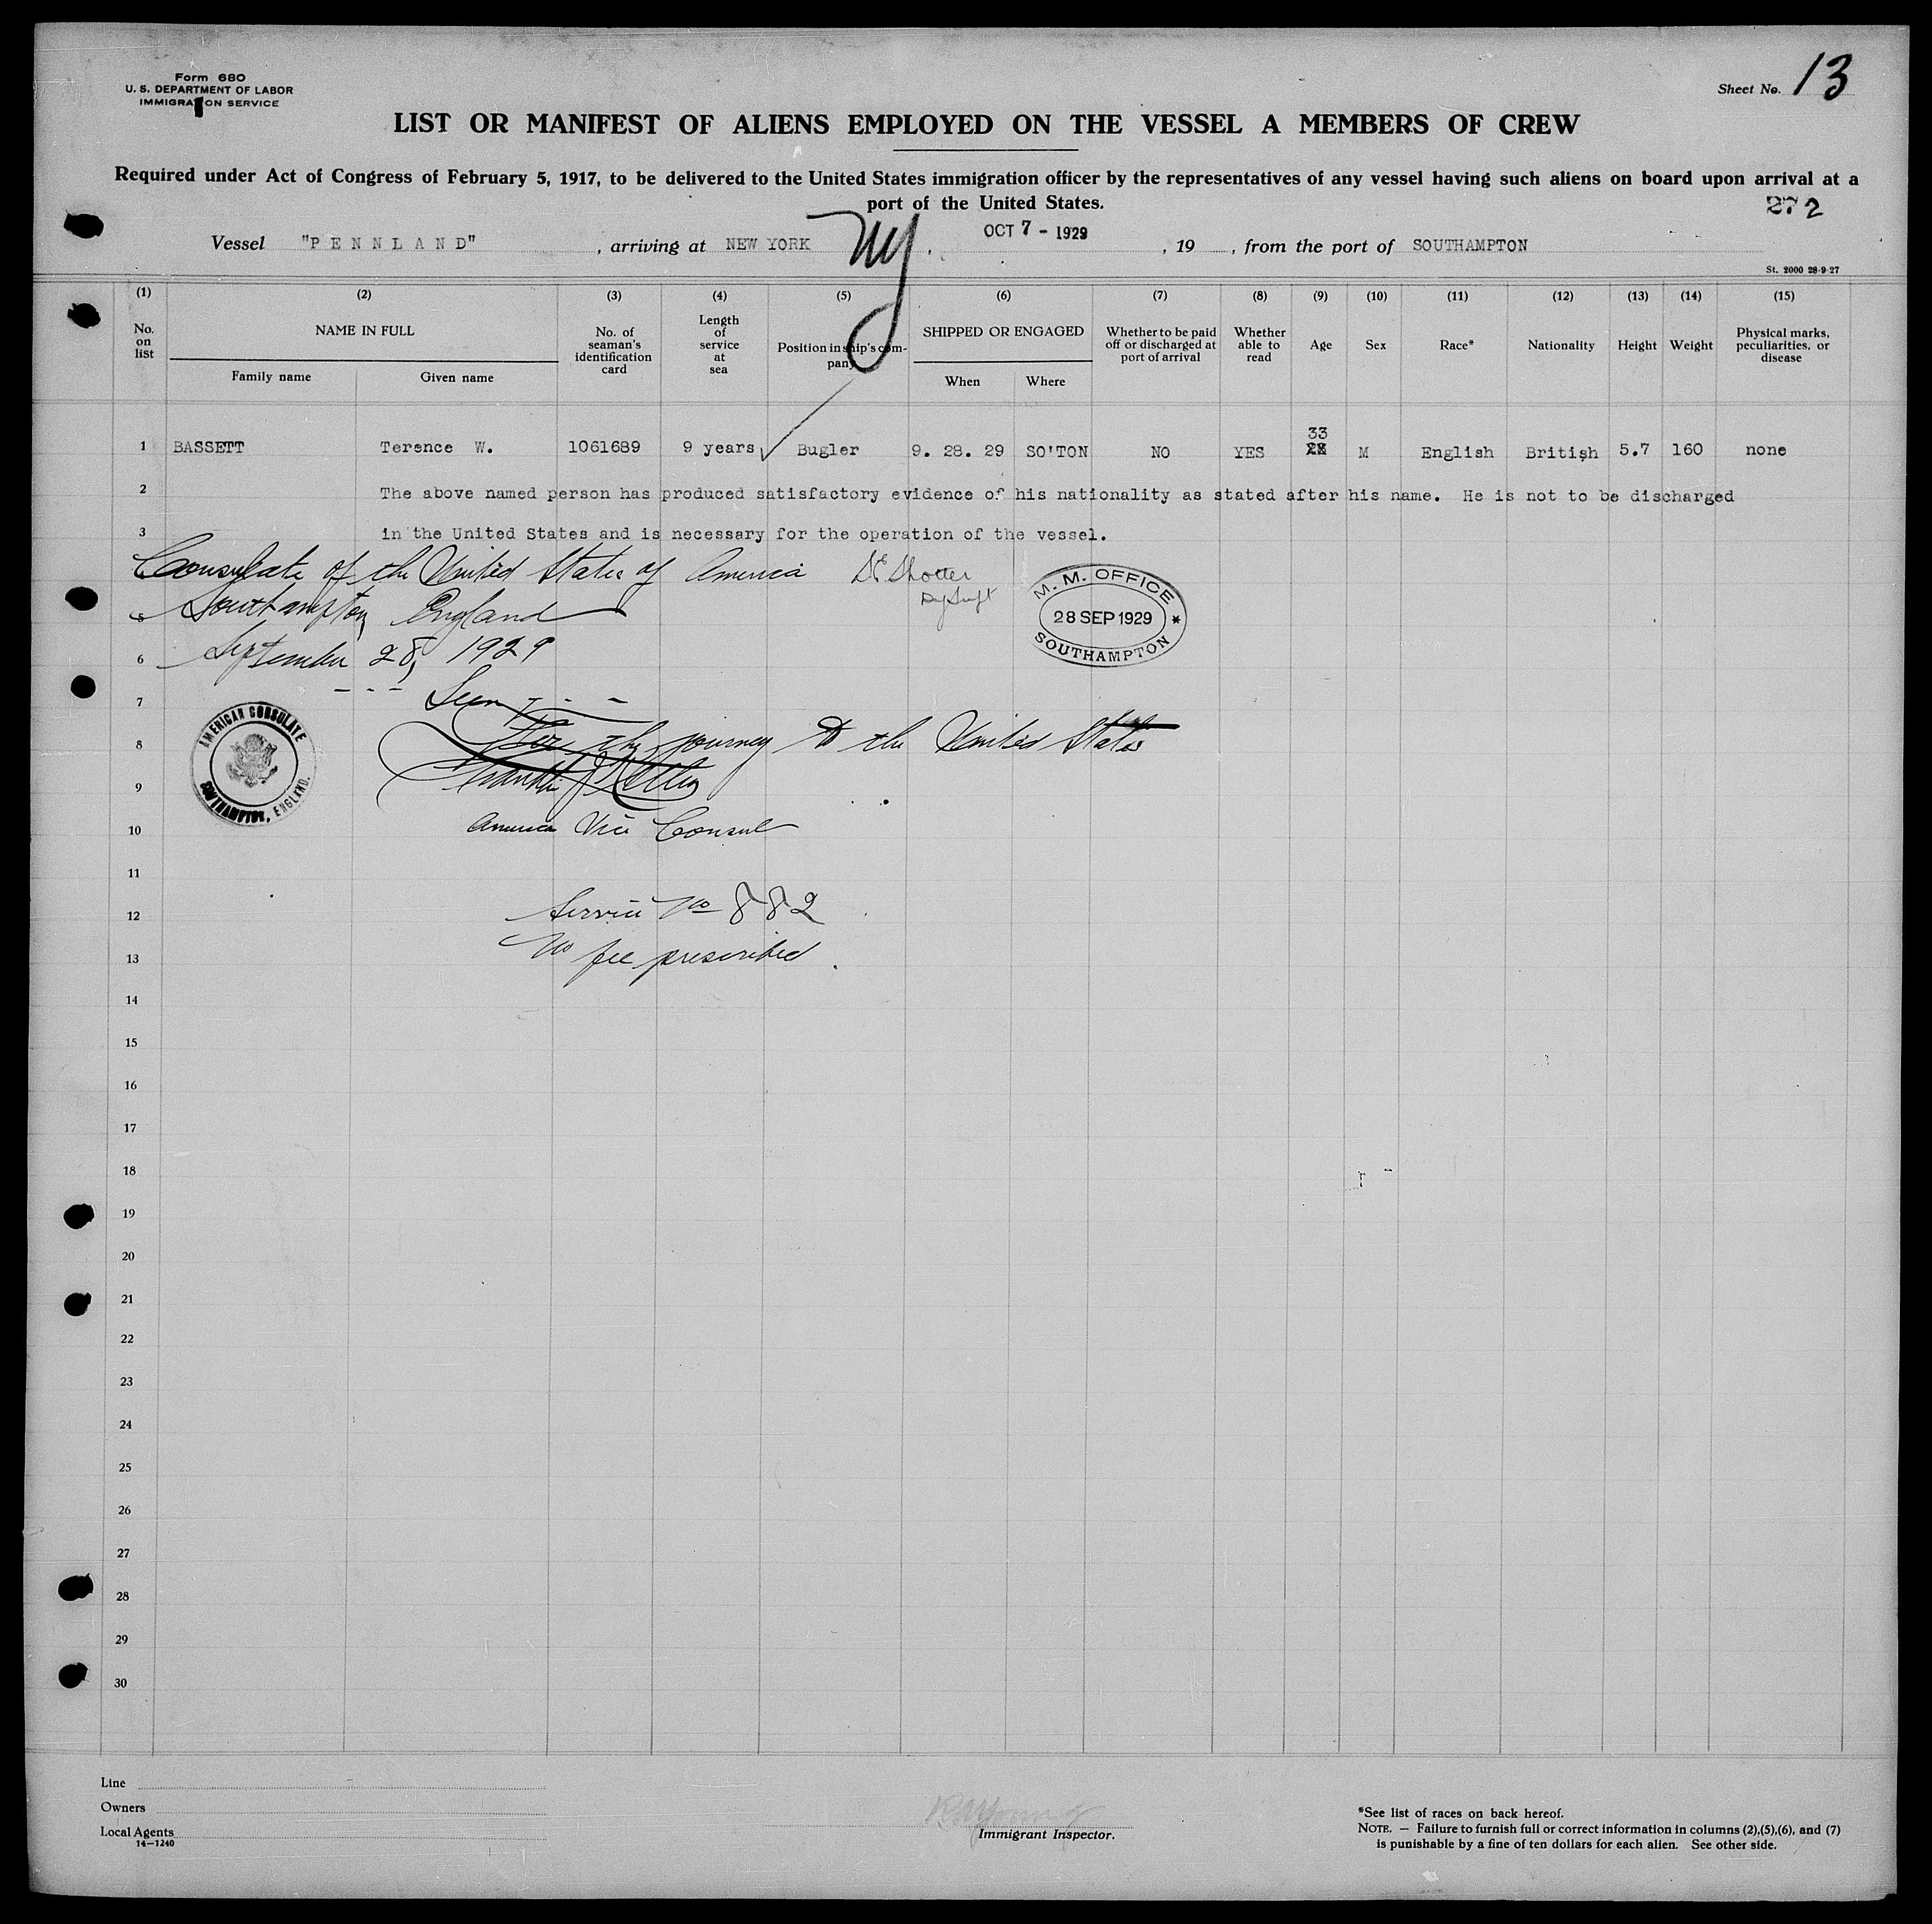 Form 680
U. S. DEPARTMENT OF LABOR
IMMIGRATION SERVICE
Sheet No. 13
LIST OR MANIFEST OF ALIENS EMPLOYED ON THE VESSEL A MEMBERS OF CREW
Required under Act of Congress of February 5, 1917, to be delivered to the United States immigration officer by the representatives of any vessel having such aliens on board upon arrival at a
port of the United States.
272
Vessel "PENNLAND", arriving at NEW YORK, OCT 7 - 1929, 19 , from the port of SOUTHAMPTON
Ny
St. 2000 28-9-27
(1) (2) (3) (4) (5) (6) (7) (8) (9) (10) (11) (12) (13) (14) (15)
No. on list
NAME IN FULL
Family name Given name
No. of seaman's identification card
Length of service at sea
Position in ship's company
SHIPPED OR ENGAGED
When Where
Whether to be paid off or discharged at port of arrival
Whether able to read
Age
Sex
Race*
Nationality
Height
Weight
Physical marks, peculiarities, or disease
33
1 BASSETT Terence W. 1061689 9 years Bugler 9. 28. 29 SO'TON NO YES 28 M English British 5.7 160 none
2 The above named person has produced satisfactory evidence of his nationality as stated after his name. He is not to be discharged
3 in the United States and is necessary for the operation of the vessel.
Consulate of the United States of America
5 Southampton, England
6 September 28, 1929
M. M. OFFICE
28 SEP 1929
SOUTHAMPTON
7 Seen
8 For the journey to the United States
9
10 American Vice Consul
AMERICAN CONSULATE
SOUTHAMPTON, ENGLAND.
11
12 Service No 882
13 No fee prescribed.
14
15
16
17
18
19
20
21
22
23
24
25
26
27
28
29
30
Line
Owners
Local Agents
14—1240
Immigrant Inspector.
*See list of races on back hereof.
NOTE. — Failure to furnish full or correct information in columns (2),(5),(6), and (7)
is punishable by a fine of ten dollars for each alien. See other side.